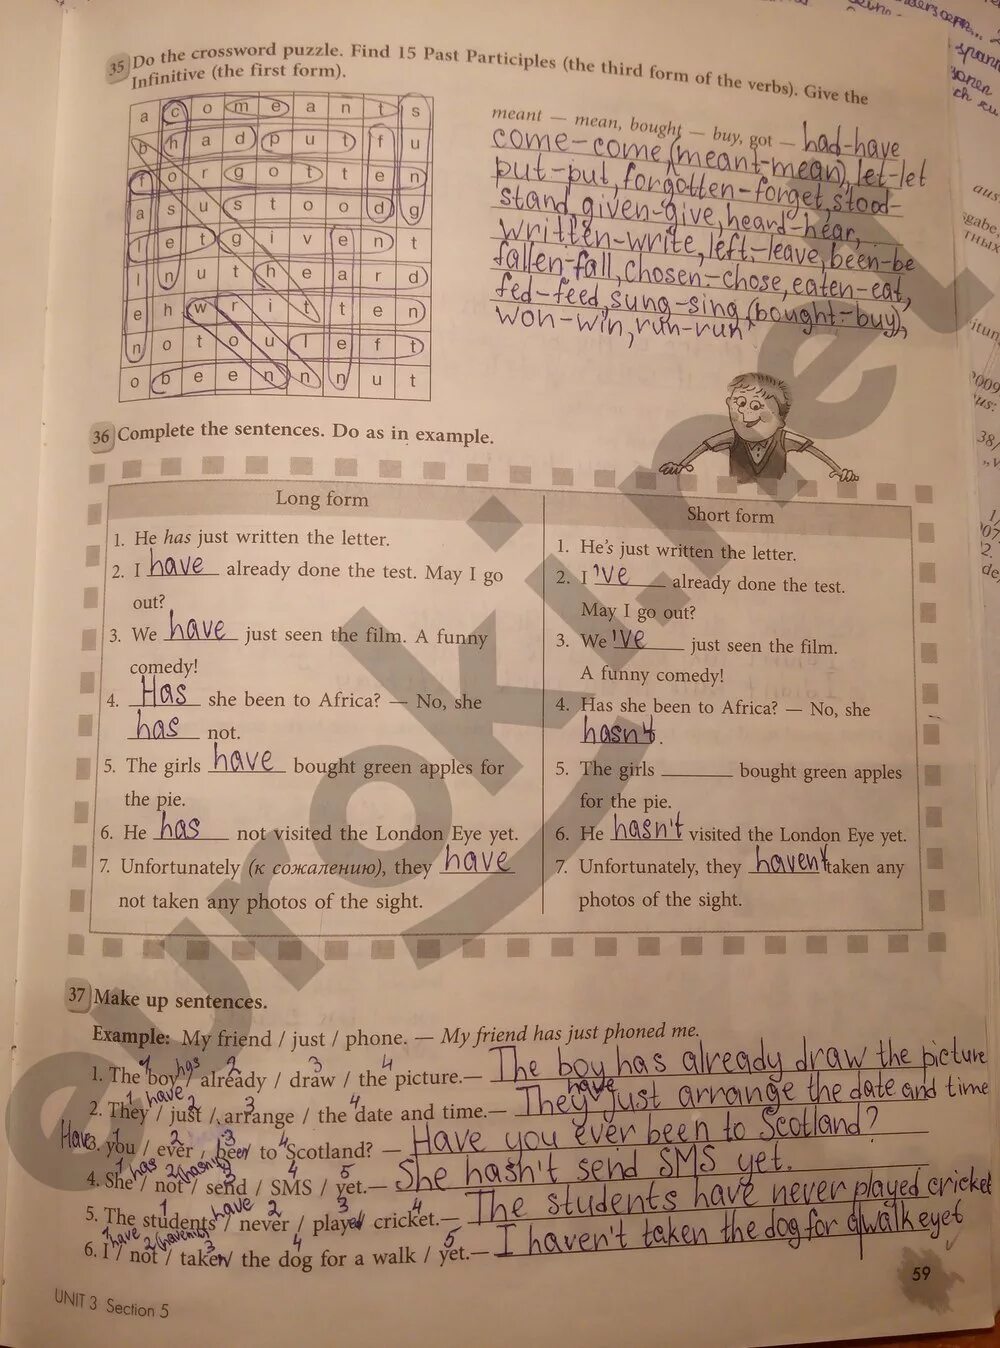 35 Do the crossword puzzle. Find 15 Past Participles (the third form of the verbs). Give the
Infinitive (the first form).
a c o m e a n t s
b h a d p u t f u
f o r g o t t e n
a s u s t o o d g
l e t g i v e n t
l n u t h e a r d
e h w r i t t e n
n o t o u l e f t
o b e e n n n u t
meant — mean, bought — buy, got — had-have
come-come, (meant-mean), let-let
put-put, forgotten-forget, stood-
stand, given-give, heard-hear,
written-write, left-leave, been-be
fallen-fall, chosen-chose, eaten-eat,
fed-feed, sung-sing (bought-buy),
won-win, run-run
36 Complete the sentences. Do as in example.
Long form
1. He has just written the letter.
2. I have already done the test. May I go
out?
3. We have just seen the film. A funny
comedy!
4. Has she been to Africa? — No, she
has not.
5. The girls have bought green apples for
the pie.
6. He has not visited the London Eye yet.
7. Unfortunately (к сожалению), they have
not taken any photos of the sight.
Short form
1. He's just written the letter.
2. I 've already done the test.
May I go out?
3. We 've just seen the film.
A funny comedy!
4. Has she been to Africa? — No, she
hasn't.
5. The girls ______ bought green apples
for the pie.
6. He hasn't visited the London Eye yet.
7. Unfortunately, they haven't taken any
photos of the sight.
37 Make up sentences.
Example: My friend / just / phone. — My friend has just phoned me.
1 has 2 3 4
1. The boy / already / draw / the picture.— The boy has already draw the picture
1 have 2 3 4
2. They / just / arrange / the date and time.— They have just arrange the date and time
Have 1 2 3 4
3. you / ever / been / to Scotland? — Have you ever been to Scotland?
1 has 2 (hasn't) 3 4 5
4. She / not / send / SMS / yet.— She hasn't send SMS yet.
1 have 2 3 4
5. The students / never / played cricket.— The students have never played cricket
1 have 2 (haven't) 3 4 5
6. I / not / taken / the dog for a walk / yet.— I haven't taken the dog for a walk yet
59
UNIT 3 Section 5
euroki.net